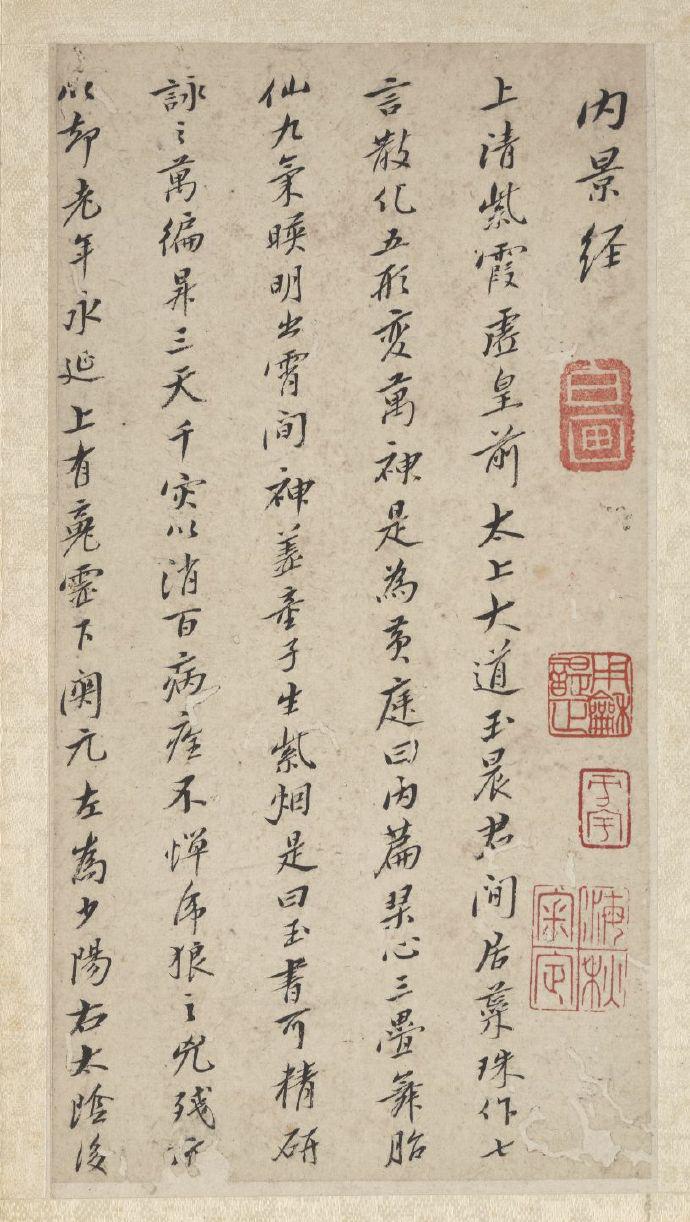 内景经
上清紫霞虚皇前太上大道玉晨君閒居蘂珠作七
言散化五形变萬神是為黄庭曰内篇琹心三疊舞胎
仙九氣映明出霄间神盖童子生紫烟是曰玉書可精研
詠之萬徧昇三天千灾以消百病痊不惮虎狼之兇残亦
以却老年永延上有魂靈下関元左為少陽右太陰後